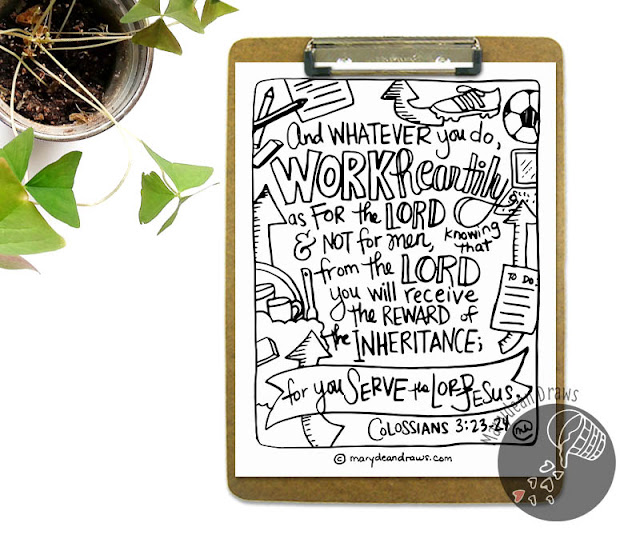 And WHATEVER you do,
WORK Heartily
as FOR the LORD
& NOT for men, knowing that
from the LORD
you will receive
the REWARD of
the INHERITANCE;
TO DO:
for you SERVE the LORD JESUS.
COLOSSIANS 3:23-24
© marydeandraws.com
Marydean Draws